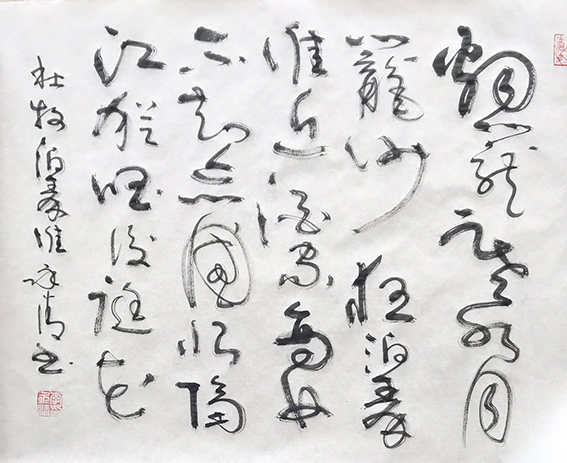 烟籠寒水月
籠沙夜泊秦
淮近酒家商女
不知亡國恨隔
江猶唱後庭花
杜牧泊秦淮書